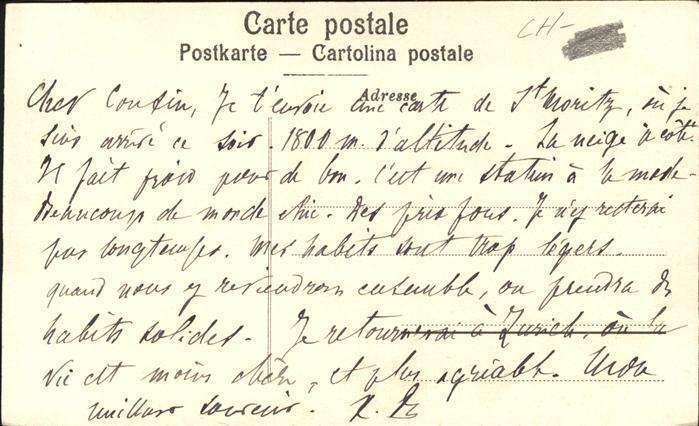 Carte postale
CH-
Postkarte — Cartolina postale
Adresse
Cher Cousin, Je t'envoie une carte de St Moritz, où je
suis arrivé ce soir. 1800 m. d'altitude - La neige à côté.
Il fait froid pour de bon. C'est une station à la mode -
Beaucoup de monde chic. Des prix fous. Je n'y resterai
pas longtemps. Mes habits sont trop légers.
quand nous y reviendrons ensemble, on prendra des
habits solides. Je retournerai à Zurich, où la
vie est moins chère, et plus agréable. Mon
meilleur souvenir.